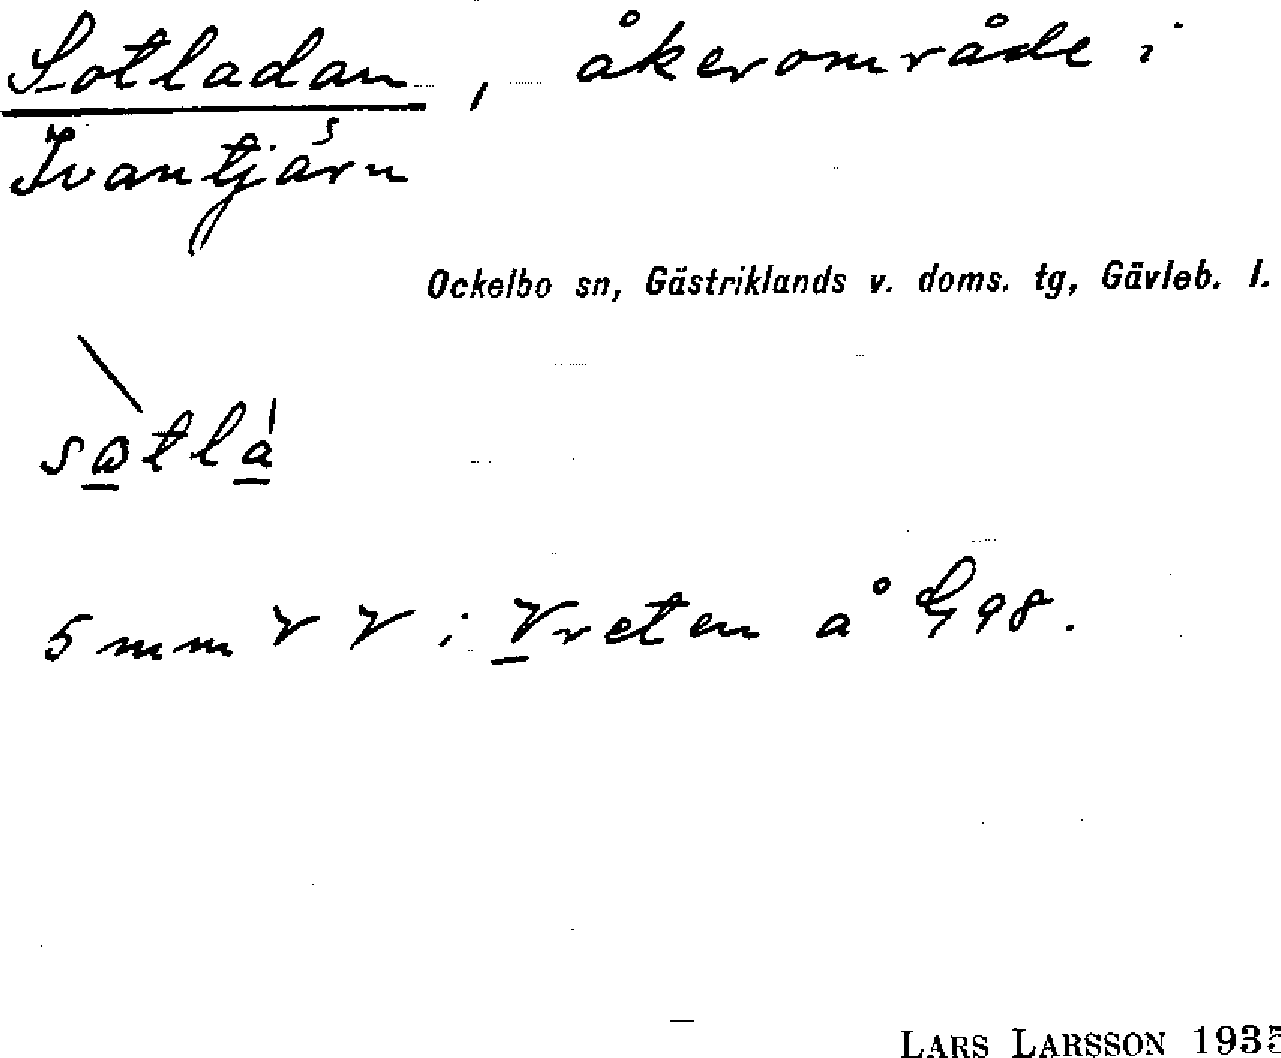 Sotladan, åkerområde i
Ivantjärn
Ockelbo sn, Gästriklands v. doms. tg, Gävleb. l.
sotla
5 mm V V i Vreten å G 98.
LARS LARSSON 1935